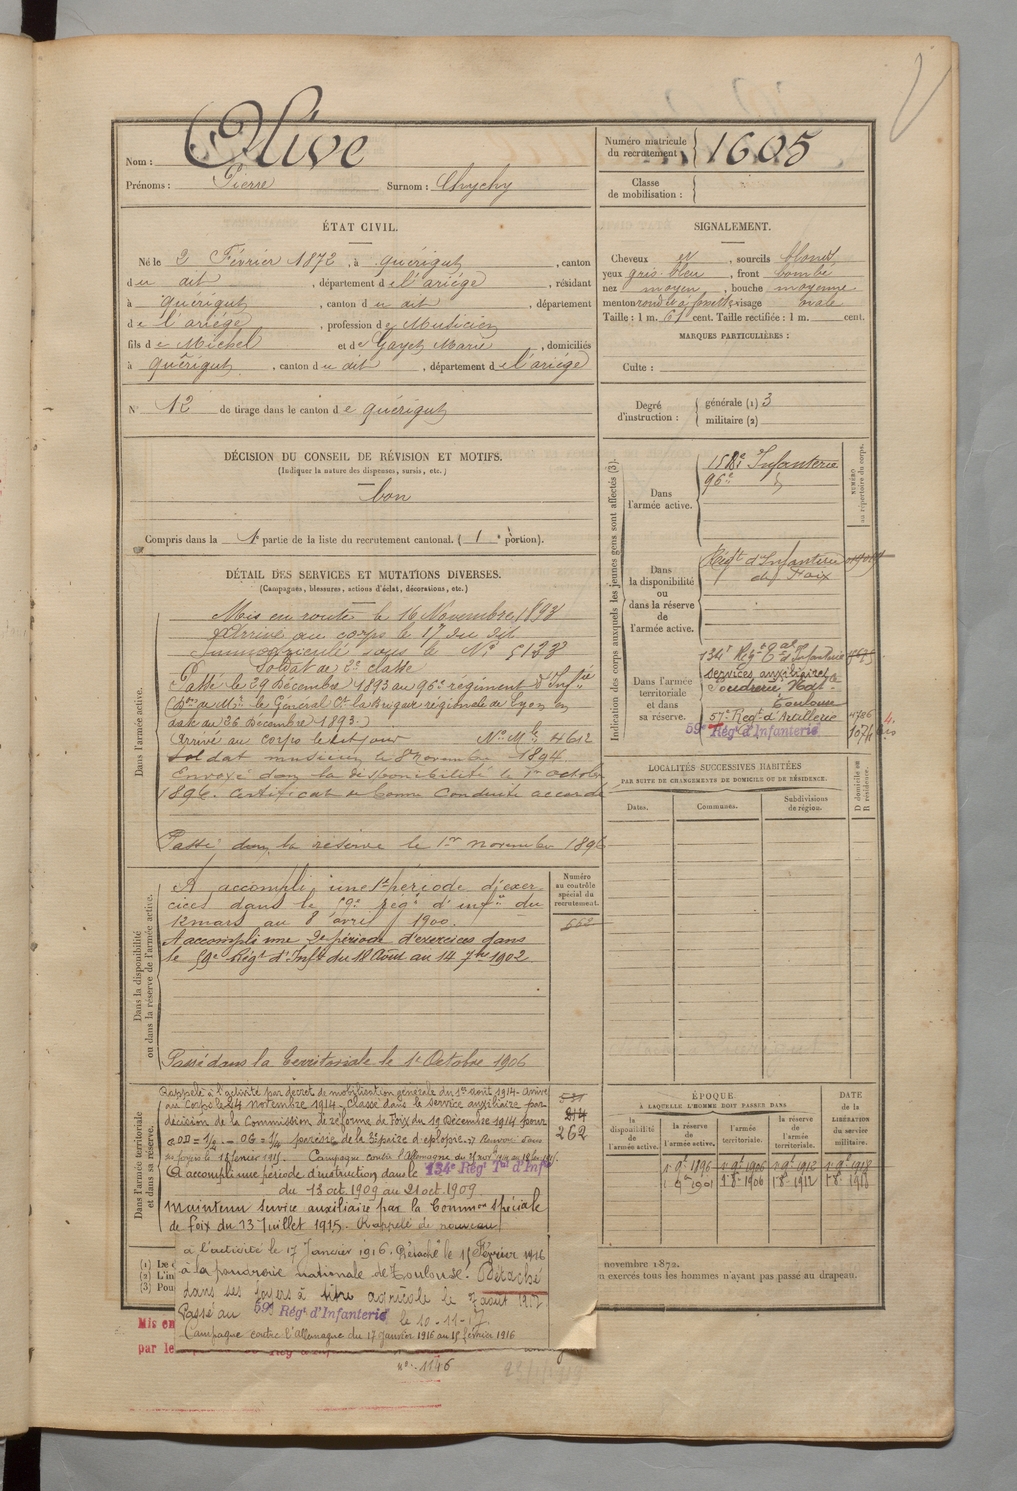 Nom : Olive
Prénoms : Pierre Surnom : Chychy
Numéro matricule du recrutement 1605
Classe de mobilisation :
ÉTAT CIVIL.
Né le 2 Février 1872, à Quérigut, canton
du dit, département de l'ariége, résidant
à Quérigut, canton du dit, département
de l'ariége, profession de Musicien
fils de Michel et de Gayet Marie, domiciliés
à Quérigut, canton du dit, département de l'ariége
N° 12 de tirage dans le canton de Quérigut
SIGNALEMENT.
Cheveux et, sourcils blonds
yeux gris bleu, front bombé
nez moyen, bouche moyenne
menton rond à fossette visage ovale
Taille : 1 m. 61 cent. Taille rectifiée : 1 m. cent.
MARQUES PARTICULIÈRES :
Culte :
Degré d'instruction : générale (1) 3
militaire (2)
DÉCISION DU CONSEIL DE RÉVISION ET MOTIFS.
(Indiquer la nature des dispenses, sursis, etc.)
bon
Compris dans la 1e partie de la liste du recrutement cantonal. (1e portion).
DÉTAIL DES SERVICES ET MUTATIONS DIVERSES.
(Campagnes, blessures, actions d'éclat, décorations, etc.)
Dans l'armée active.
Mis en route le 16 Novembre 1893
Arrivé au corps le 17 du dit
Immatriculé sous le N° 5133
Soldat de 2e classe
Passé le 29 Décembre 1893 au 96e régiment d'Inf.ie
le Général Ct la Brigade régionale de Lyon en
date du 26 Décembre 1893.)
Arrivé au corps le dit jour N° Mle 4612
Soldat musicien le 8 novembre 1894
Envoyé dans la disponibilité le 1er octobre
1896. Certificat de bonne conduite accordé
Passé dans la réserve le 1er novembre 1896
Dans la disponibilité ou dans la réserve de l'armée active.
Numéro au contrôle spécial du recrutement.
662
A accompli une 1e période d'exer-
cices dans le 59e régt d'inf.ie du
12 mars au 8 avril 1900.
A accompli une 2e période d'exercices dans
le 59e Régt d'Inf.ie du 18 Août au 14 7bre 1902
Passé dans la territoriale le 1er Octobre 1906
Dans l'armée territoriale et dans sa réserve.
262
Rappelé à l'activité par décret de mobilisation générale du 1er août 1914. Arrivé
au Corps le 24 novembre 1914. Classé dans le service auxiliaire par
décision de la Commission de réforme de Foix du 19 Décembre 1914 pour
OD = 1/2 - OG = 1/4 Renvoyé dans
ses foyers le 18 février 1915. Campagne contre l'Allemagne
A accompli une période d'instruction dans le 134e Régt Tal d'Infie
du 13 oct. 1909 au 21 oct. 1909.
Maintenu service auxiliaire par la Common spéciale
de Foix du 23 Juillet 1915. Rappelé de nouveau
à l'activité le 17 Janvier 1916. Détaché le 15 Février 1916
à la poudrerie nationale de Toulouse. Détaché
dans ses foyers à titre agricole le 7 août 1917
Passé au 59e Régt d'Infanterie le 10-11-17.
Campagne contre l'Allemagne du 17 janvier 1916 au 15 février 1916
Mis en
par le
n° 1146
Indication des corps auxquels les jeunes gens sont affectés (3).
NUMÉRO au répertoire du corps.
Dans l'armée active.
158e Infanterie
96e
Dans la disponibilité ou dans la réserve de l'armée active.
Régt d'Infanterie
de Foix
Dans l'armée territoriale et dans sa réserve.
134e Régt Tal d'Infanterie
services auxiliaires
Poudrerie Nale
Toulouse
57e Regt d'Artillerie
59e Régt d'Infanterie
LOCALITÉS SUCCESSIVES HABITÉES
PAR SUITE DE CHANGEMENTS DE DOMICILE OU DE RÉSIDENCE.
D domicile ou R résidence.
Dates. Communes. Subdivisions de région.
ÉPOQUE
À LAQUELLE L'HOMME DOIT PASSER DANS
DATE de la LIBÉRATION du service militaire.
la disponibilité de l'armée active. la réserve de l'armée active. l'armée territoriale. la réserve de l'armée territoriale.
1er 9e 1896 1er 9e 1906 1er 9e 1912 1er 9e 1918
1906 1912 1918
(1) De
(2) L'in
(3) Pou
novembre 1872.
n exercés tous les hommes n'ayant pas passé au drapeau.